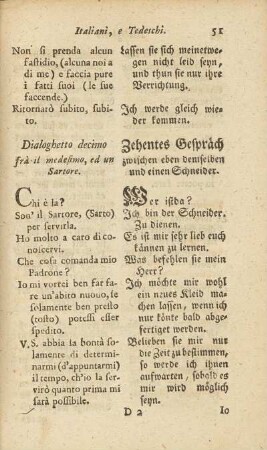 Italiani, e Tedeschi. 51
Non si prenda alcun
fastidio, (alcuna noi a
di me) e faccia pure
i fatti suoi (le sue
faccende.)
Ritornarò subito, subi-
to.
Dialoghetto decimo
frà il medesimo, ed un
Sartore.
Chi è la?
Son' il Sartore, (Sarto)
per servirla.
Ho molto a caro di co-
noicervi.
Che cosa comanda mio
Padrone?
Io mi vorrei ben far fa-
re un'abito nuovo, le
solamente ben presto
(tosto) potessi esser
spedito.
V. S. abbia la bontà so-
lamente di determi-
narmi (d'appuntarmi)
il tempo, ch'io la ser-
virò quanto prima mi
sarà possibile.
Lassen sie sich meinetwe-
gen nicht leid seyn,
und thun sie nur ihre
Verrichtung.
Ich werde gleich wie-
der kommen.
Zehentes Gespräch
zwischen eben demselben
und einen Schneider.
Wer istda?
Ich bin der Schneider.
Zu dienen.
Es ist mir sehr lieb euch
können zu lernen.
Was befehlen sie mein
Herr?
Ich möchte mir wohl
ein neues Kleid ma-
chen lassen, wenn ich
nur könte bald abge-
fertiget werden.
Belieben sie mir nur
die Zeit zu bestimmen,
so werde ich ihnen
aufwarten, sobald es
mir wird möglich
seyn.
D 2 Io